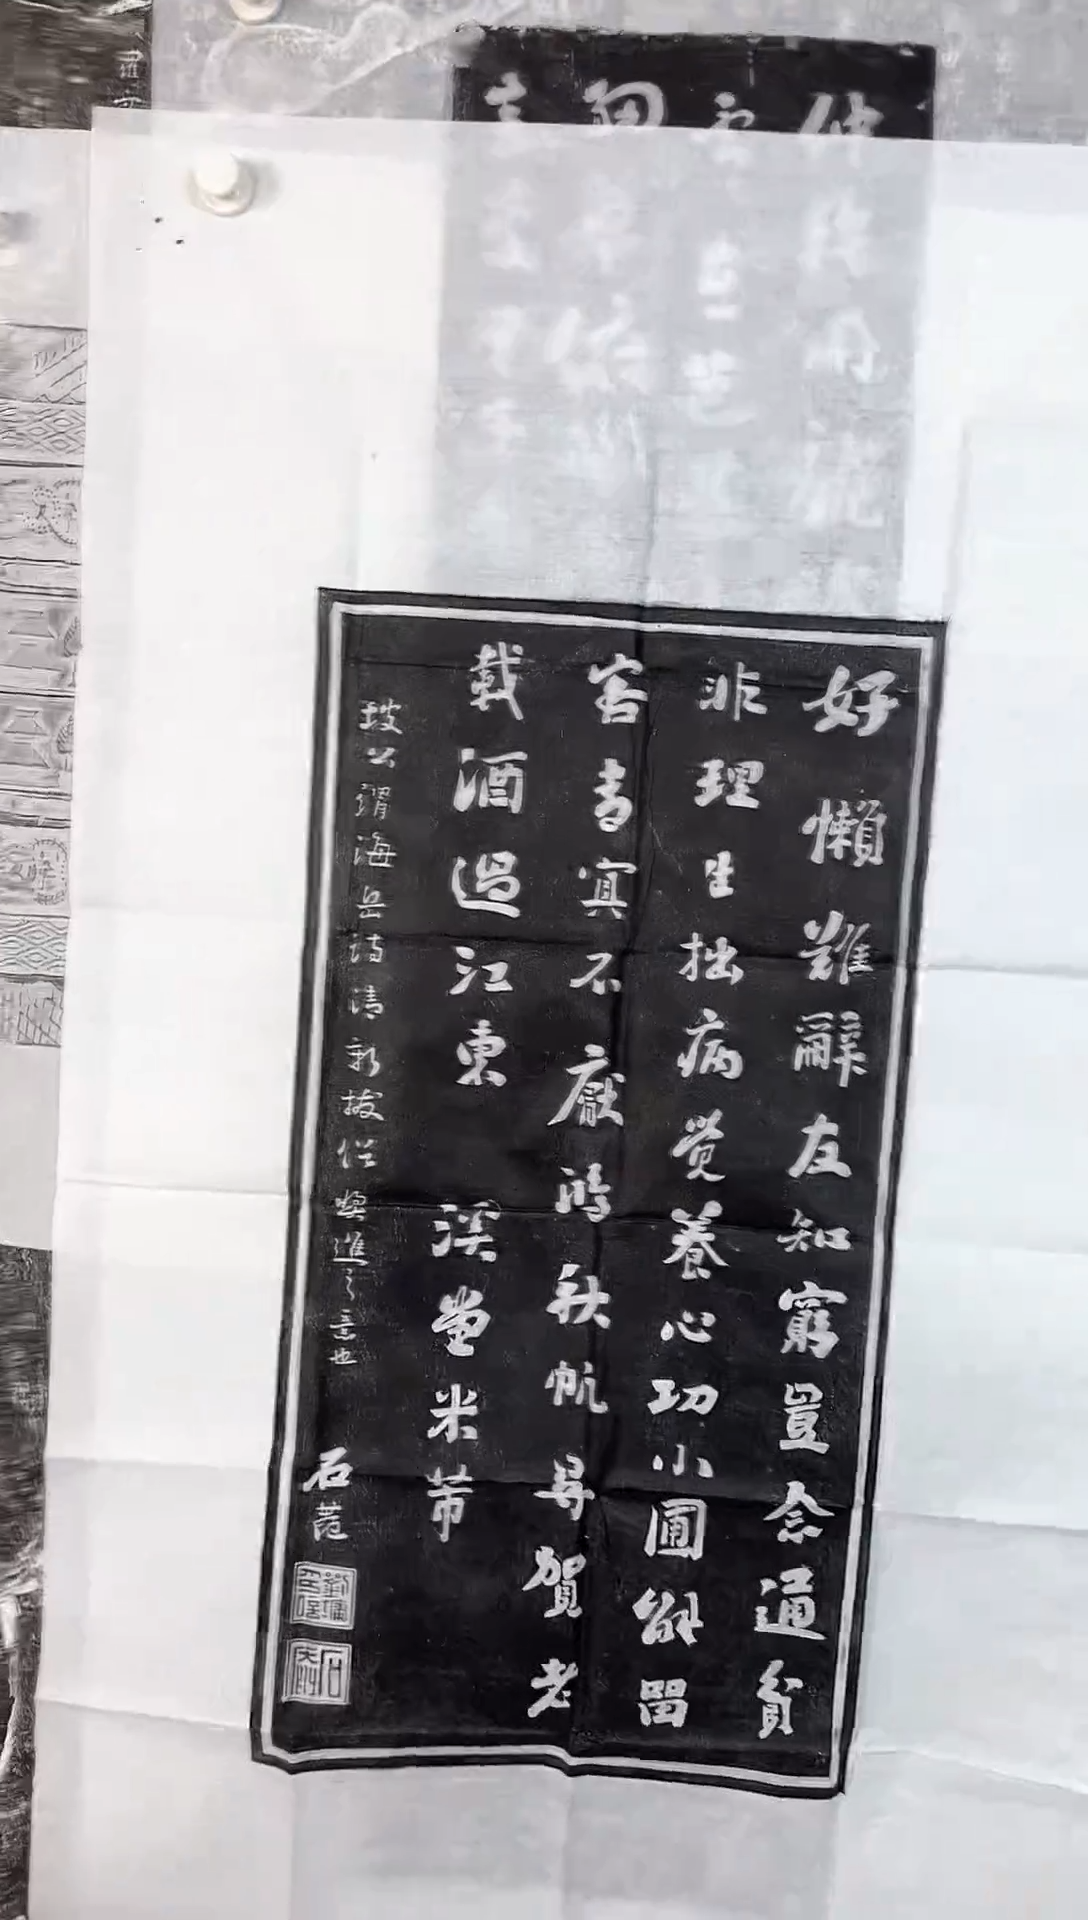 好懶難辭友知窮豈念通貧
非理生拙病覺養心功小圃能留
客青冥不厭鴻秋帆尋賀老
載酒過江東 溪堂米芾
坡公謂海岳詩清新拔俗獎進之言也 石菴
劉墉